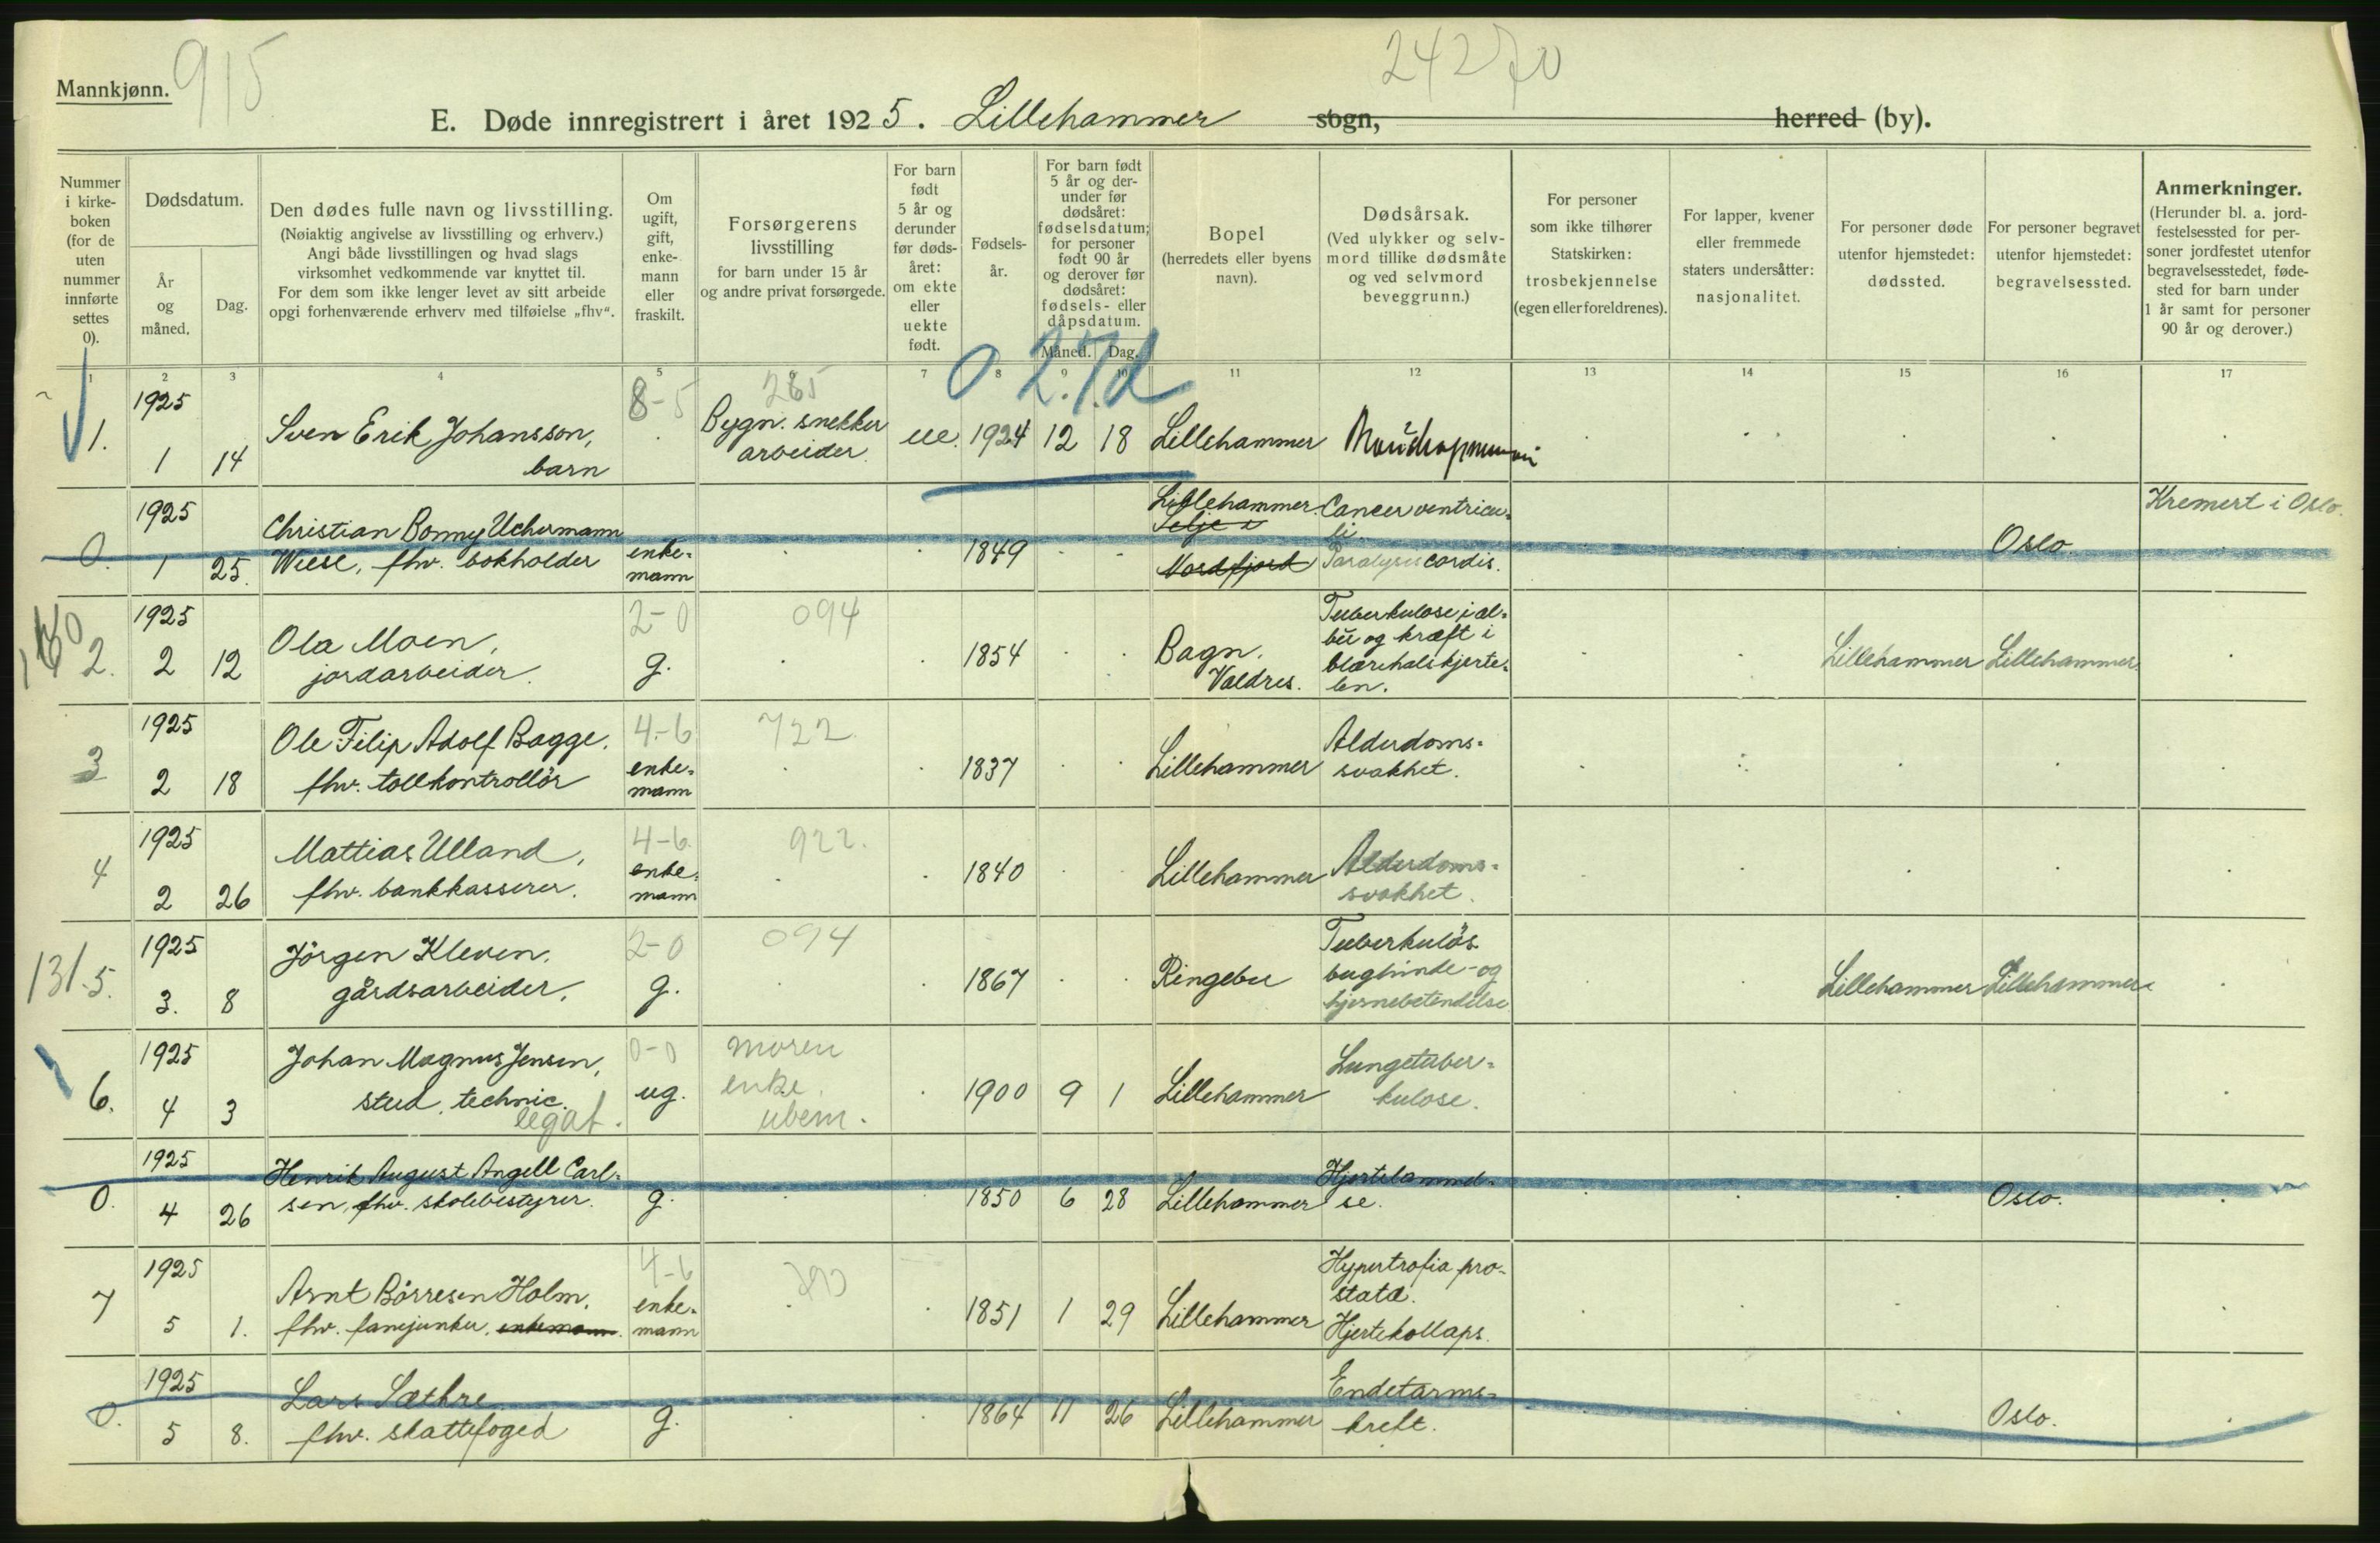 915
24270
Mannkjønn.
E. Døde innregistrert i året 1925. Lillehammer sogn, herred (by).
Nummer i kirkeboken (for de uten nummer innførte settes 0).
Dødsdatum.
År og måned.
Dag.
Den dødes fulle navn og livsstilling.
(Nøiaktig angivelse av livsstilling og erhverv.)
Angi både livsstillingen og hvad slags
virksomhet vedkommende var knyttet til.
For dem som ikke lenger levet av sitt arbeide
opgi forhenværende erhverv med tilføielse „fhv“.
Om ugift, gift, enkemann eller fraskilt.
Forsørgerens livsstilling
for barn under 15 år
og andre privat forsørgede.
For barn født 5 år og derunder før dødsåret: om ekte eller uekte født.
Fødselsår.
For barn født 5 år og derunder før dødsåret: fødselsdatum; for personer født 90 år og derover før dødsåret: fødsels- eller dåpsdatum.
Måned. Dag.
Bopel
(herredets eller byens navn).
Dødsårsak.
(Ved ulykker og selvmord tillike dødsmåte og ved selvmord beveggrunn.)
For personer som ikke tilhører Statskirken: trosbekjennelse (egen eller foreldrenes).
For lapper, kvener eller fremmede staters undersåtter: nasjonalitet.
For personer døde utenfor hjemstedet: dødssted.
For personer begravet utenfor hjemstedet: begravelsessted.
Anmerkninger.
(Herunder bl. a. jordfestelsessted for personer jordfestet utenfor begravelsesstedet, fødested for barn under 1 år samt for personer 90 år og derover.)
1 2 3 4 5 7 8 9 10 11 12 13 14 15 16 17
0 2.7.d
1. 1925 1 14 Sven Erik Johansson, barn 8-5 265 Bygn. snekker arbeider. ue. 1924 12 18 Lillehammer
0. 1925 1 25. Christian Bonny Uchermann Wiese, fhv. bokholder enke-mann 1849 Lillehammer. Selje i Nordfjord Cancer ventriculi. Paralysis cordis. Oslo. Kremert i Oslo.
2. 1925 2 12 Ola Moen, jordarbeider. 2-0 g. 094 1854 Bagn. Valdres. Tuberkulose i albu og kræft i blærehalskjertelen. Lillehammer Lillehammer
3 1925 2 18 Ole Filip Adolf Bagge. fhv. tollkontrollör 4-6 enke-mann 722 1837 Lillehammer Alderdoms-svakhet.
4 1925 2 26 Mattias Ulland, fhv. bankkasserer. 4-6 enke-mann 922. 1840 Lillehammer Alderdoms-svakhet.
131. 5. 1925 3. 8 Jörgen Kleven. gårdsarbeider. 2-0 g. 094 1867 Ringebu Tuberkulös bughinde- og hjernebetendelse Lillehammer Lillehammer
6. 1925 4 3 Johan Magnus Jensen, stud. technic. legat. 0-0 ug. moren enke. ubem. 1900 9 1 Lillehammer Lungetuber-kulose.
0. 1925 4 26 Henrik August Angell Carl-sen, fhv. skolebestyrer. g. 1850 6 28 Lillehammer Hjertelammel-se. Oslo.
7 1925 5 1. Arnt Börresen Holm. fhv. fanejunker, enkemann. 4-6 enke-mann 1851 1 29 Lillehammer Hypertrofia pro-statæ. Hjertekollaps.
0. 1925 5 8. Lars Sæthre fhv. skattefoged g. 1864 11 26 Lillehammer Endetarms-kreft. Oslo.